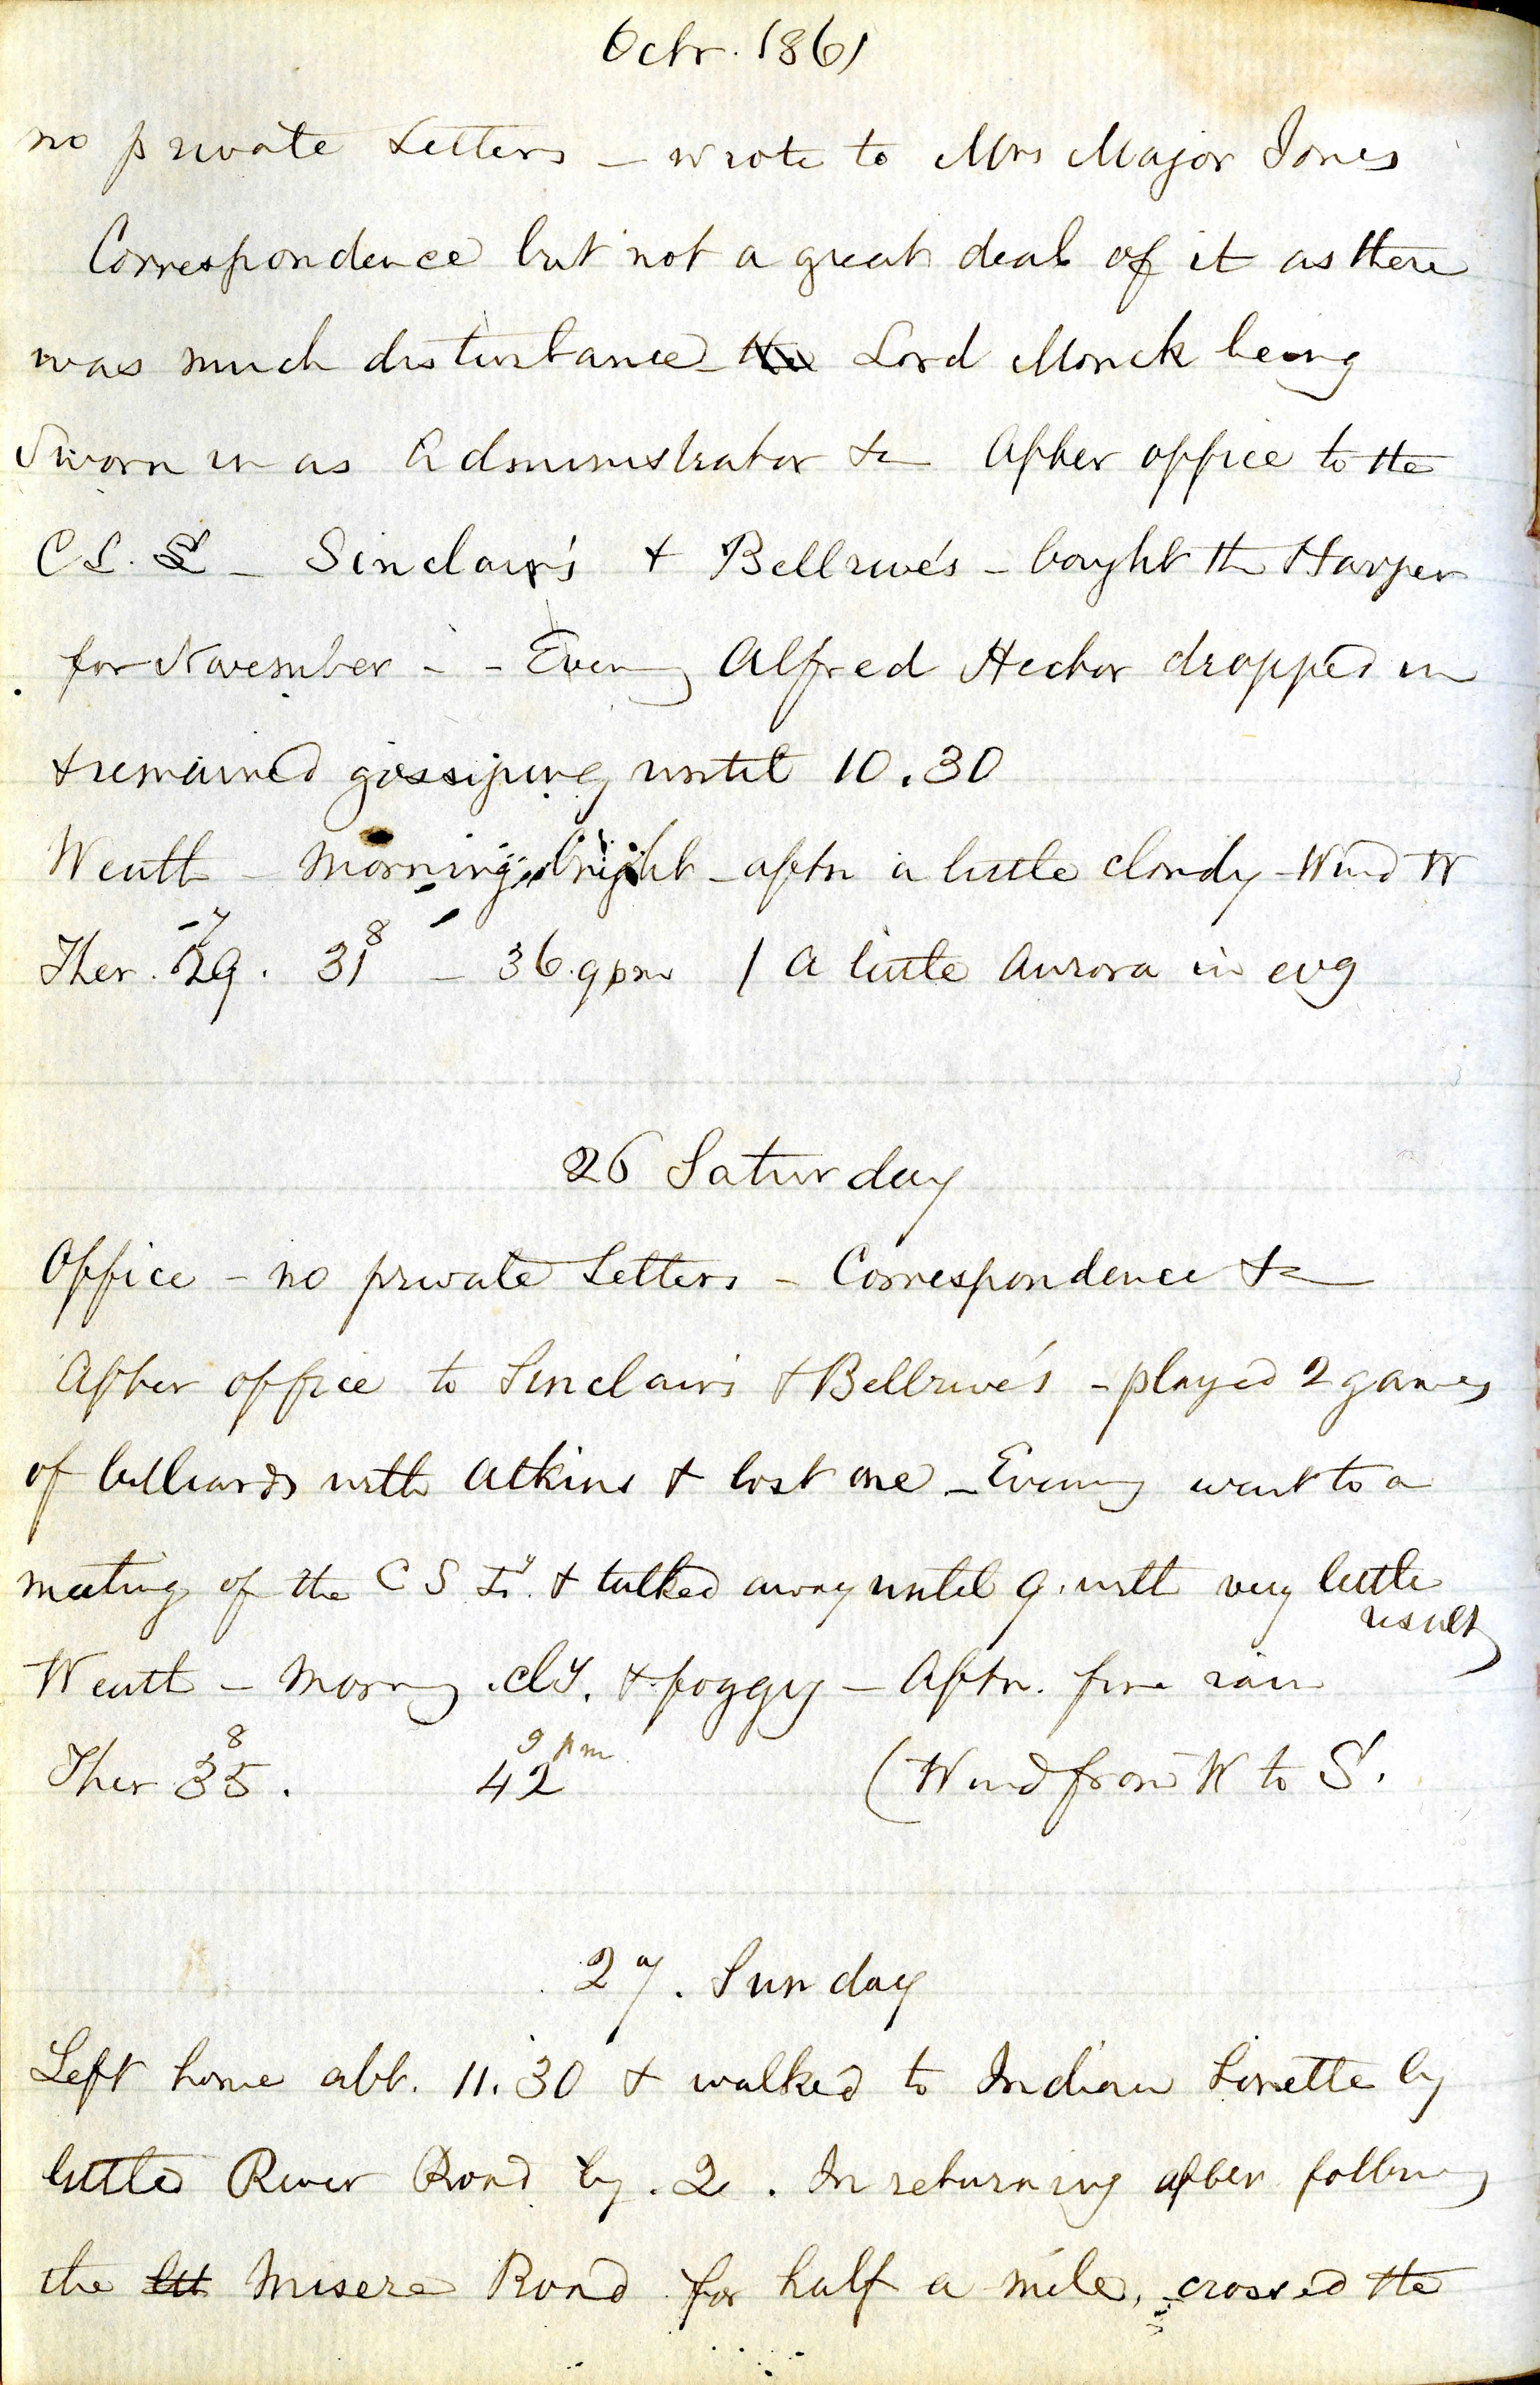 Octr. 1861
no private Letters - wrote to Mrs Major Jones
Correspondence but not a great deal of it as there
was much disturbance - the Lord Monck being
Sworn in as Administrator &c After office to the
C L. S - Sinclair's & Bellrive's - bought the Harper
for November - - Evening Alfred Hector dropped in
& remained gossiping until 10.30
Weath - Morning bright - aftn a little cloudy - Wind W
Ther. 29.7 31 8 - 36. 9 pm / A little Aurora in evg
26 Saturday
Office - no private Letters - Correspondence &c
After office to Sinclair's & Bellrive's - played 2 games
of billiards with Atkins & lost one - Evening went to a
meeting of the C S Ly. & talked away until 9. with very little
result
Weath - Morning cly. & foggy - Aftn. fine rain
Ther 35 8. 42 9 pm (Wind from W to S.
27. Sunday
Left home abt. 11.30 & walked to Indian Lorette by
little River Road by. 2. In returning after following
the litt Misere Road for half a mile, crossed the